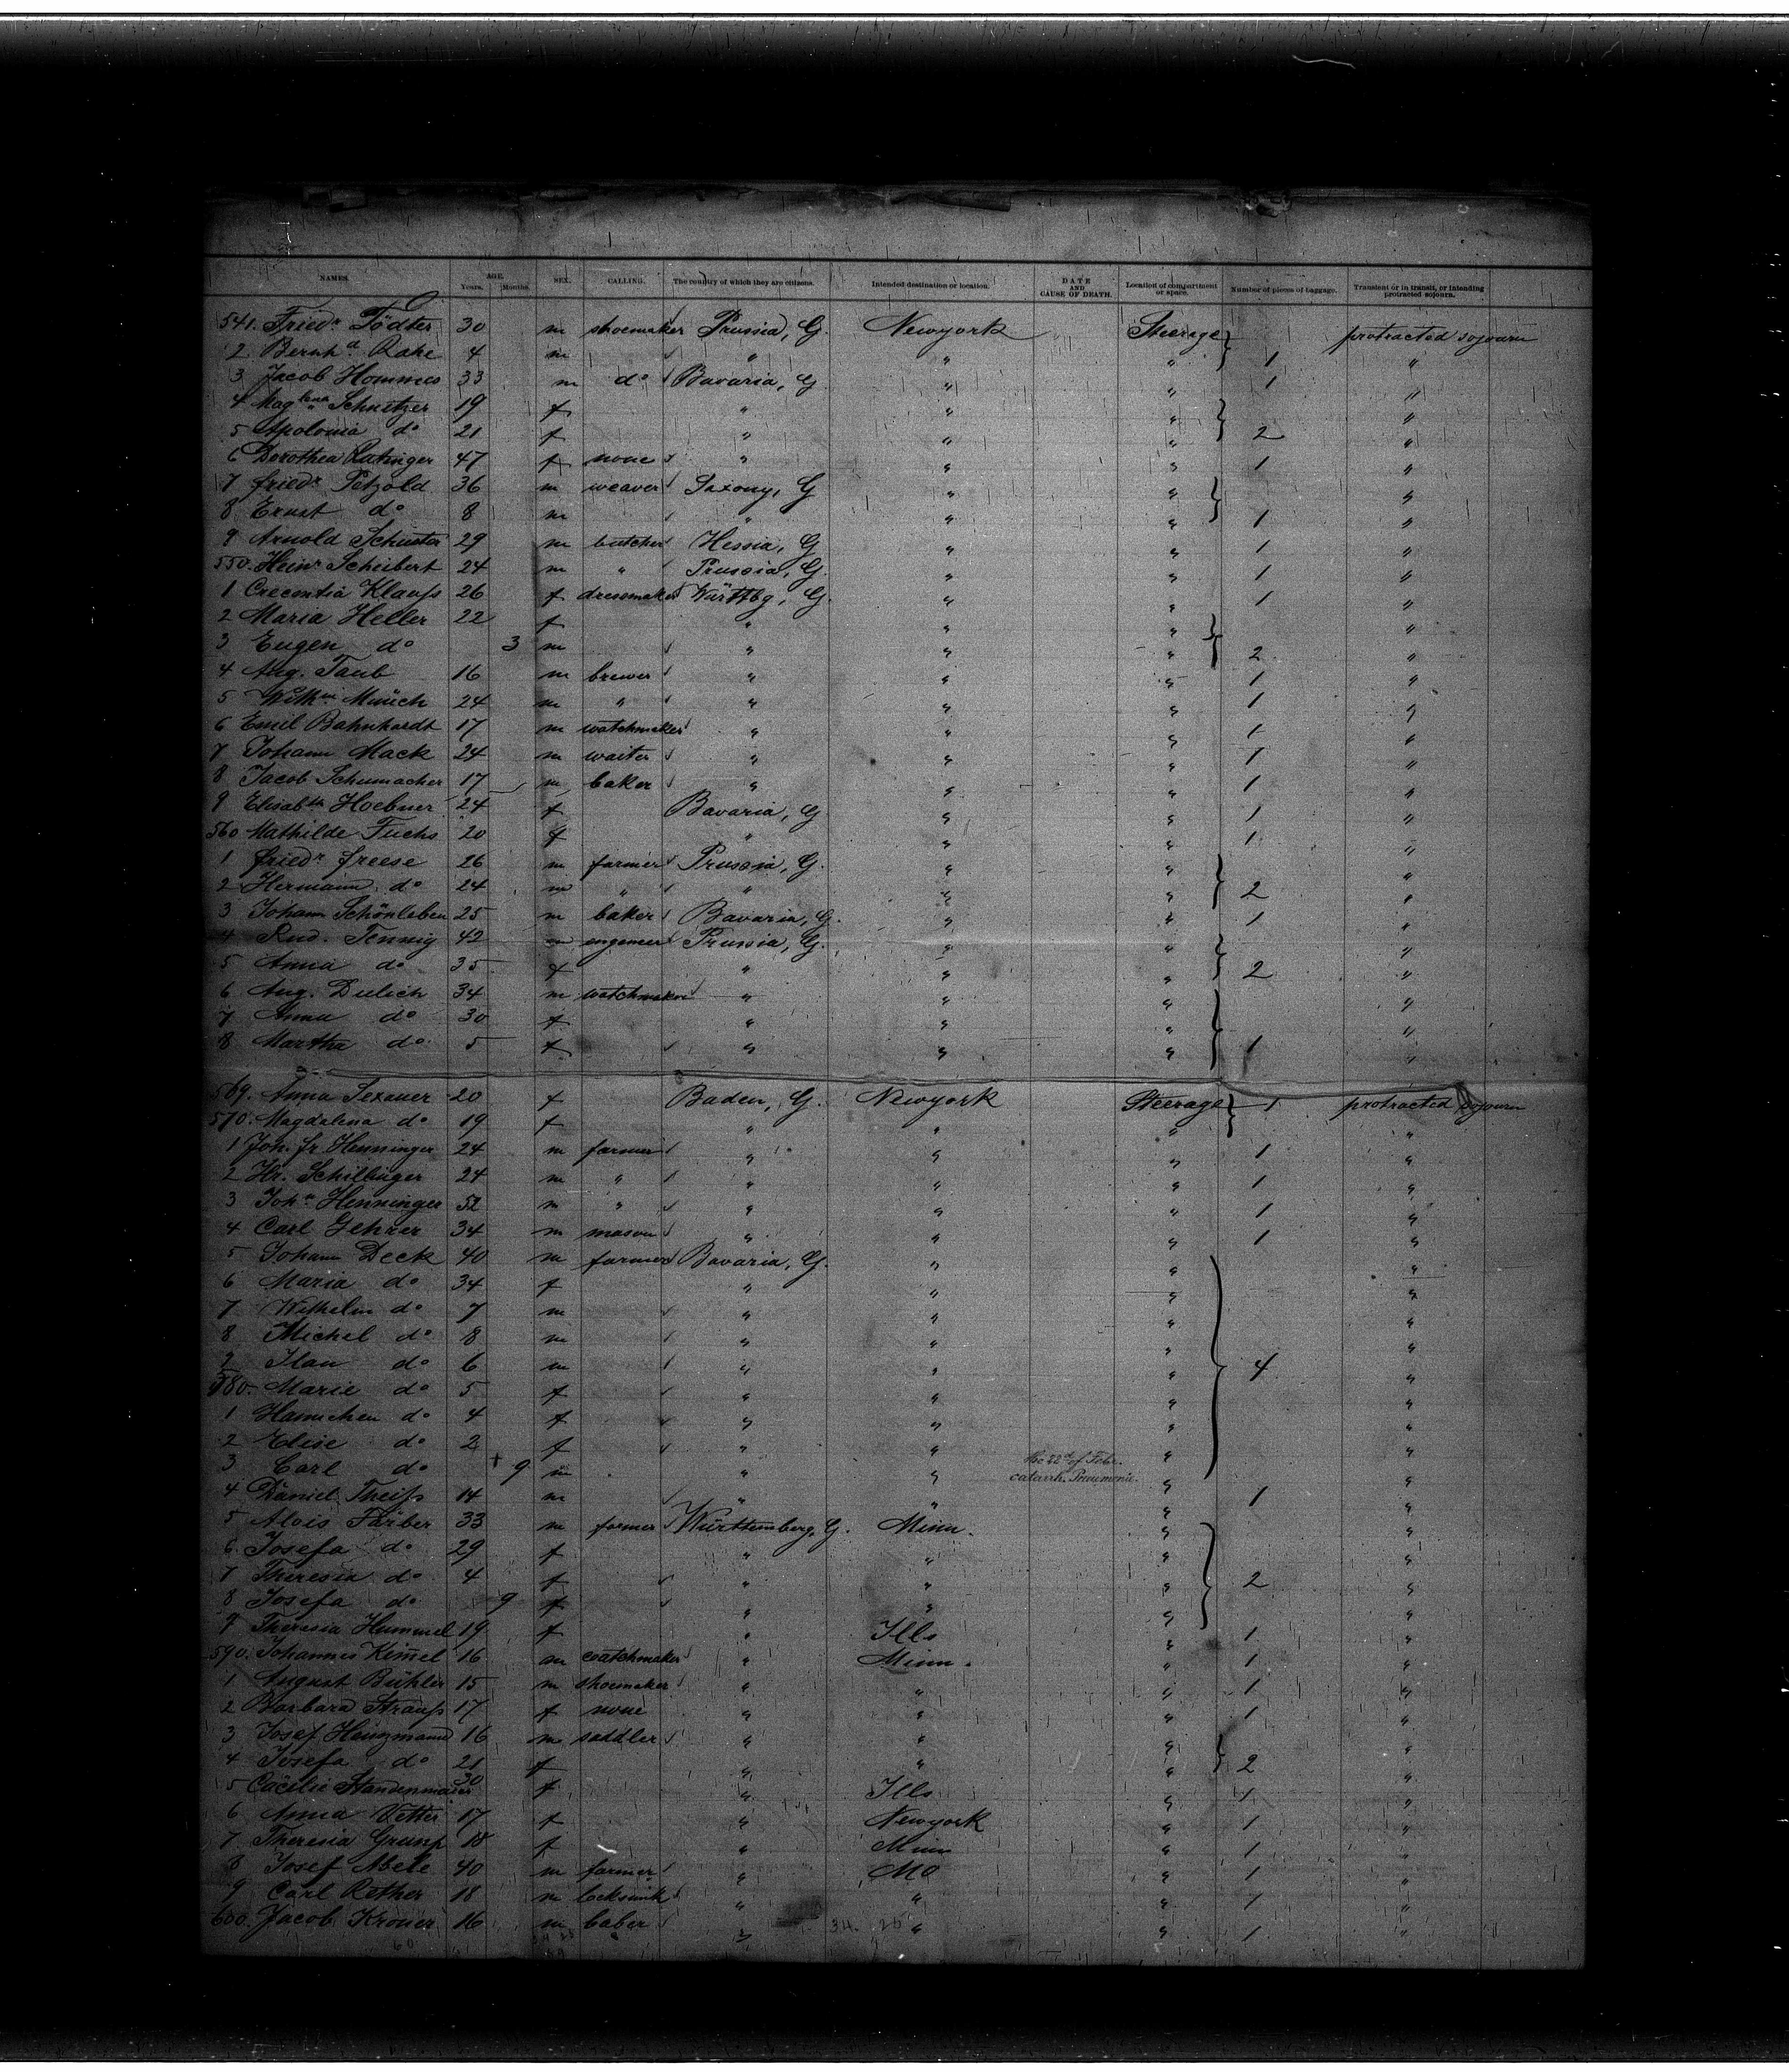 NAMES. AGE. Years. Months. SEX. CALLING. The country of which they are citizens. Intended destination or location. DATE AND CAUSE OF DEATH. Location of compartment or space. Number of pieces of baggage. Transient or in transit, or intending protracted sojourn.
541. Friedr. Tödter 30 m shoemaker Prussia, G. Newyork Steerage protracted sojourn
2 Bernhd Rake 4 m " " " 1 "
3 Jacob Hommes 33 m do Bavaria, G " " 1 "
4 Maglena Schnitzer 19 f " " " "
5 Apolonia do 21 f " " " 2 "
6 Dorothea 47 f none " " " 1 "
7 Friedr Petzold 36 m weaver Saxony, G " " "
8 Ernst do 8 m " " " 1 "
9 Arnold Schuster 29 m butcher Hessia, G " " 1 "
550. Heinr Scheibert 24 m " Prussia, G. " " 1 "
1 Crecentia Klauss 26 f dressmaker Württbg, G. " " 1 "
2 Maria Heller 22 f " " " "
3 Eugen do 3 m " " " 2 "
4 Aug. Taub 16 m brewer " " " 1 "
5 Wilhm Münch 24 m " " " " 1 "
6 Emil Bahnhardt 17 m watchmaker " " " 1 "
7 Johann Mack 24 m waiter " " " 1 "
8 Jacob Schumacher 17 m baker " " " 1 "
9 Elisabth Hoebner 24 f Bavaria, G " " 1 "
560 Mathilde Fuchs 20 f " " " 1 "
1 Friedr Freese 26 m farmer Prussia, G. " " "
2 Hermann do 24 m " " " " 2 "
3 Johann Schönleben 25 m baker Bavaria, G. " " 1 "
4 Rud. Tennig 42 m engeneer Prussia, G. " " "
5 Anna do 35 f " " " 2 "
6 Aug. Dulich 34 m watchmaker " " " "
7 Anna do 30 f " " " "
8 Martha do 5 f " " " 1 "
569. Anna Sexauer 20 f Baden, G. Newyork Steerage 1 protracted sojourn
570. Magdalena do 19 f " " " "
1 Joh. Fr Henninger 24 m farmer " " " 1 "
2 Hr. Schillinger 24 m " " " " 1 "
3 John Henninger 52 m " " " " 1 "
4 Carl Gehrer 34 m mason " " " 1 "
5 Johann Deck 40 m farmer Bavaria, G. " " "
6 Maria do 34 f " " " "
7 Wilhelm do 7 m " " " "
8 Michel do 8 m " " " "
9 do 6 m " " " 4 "
580. Marie do 5 f " " " "
1 Hannchen do 4 f " " " "
2 Elise do 2 f " " " "
3 Carl do + 9 m " " the 22d of Febr. catarrh. Pneumonie. " "
4 Daniel Theiss 14 m " " " 1 "
5 Alois Färber 33 m farmer Württemberg, G. Minn. " "
6 Josefa do 29 f " " " "
7 Theresia do 4 f " " " 2 "
8 Josefa do 9 f " " " "
9 Theresia Hummel 19 f " Ills " 1 "
590. Johannes Kimmel 16 m watchmaker " Minn. " 1 "
1 August Bühler 15 m shoemaker " " " 1 "
2 Barbara Strauss 17 f none " " " 1 "
3 Josef Heinzmann 16 m saddler " " " "
4 Josefa do 21 f " " " 2 "
5 Cäcilie Standenmaier 30 f " Ills " 1 "
6 Anna Vetter 17 f " Newyork " 1 "
7 Theresia 18 f " Minn " 1 "
8 Josef Abele 40 m farmer " MO " 1 "
9 Carl Rether 18 m locksmith " " " 1 "
600. Jacob Kroner 16 m baker " " " 1 "